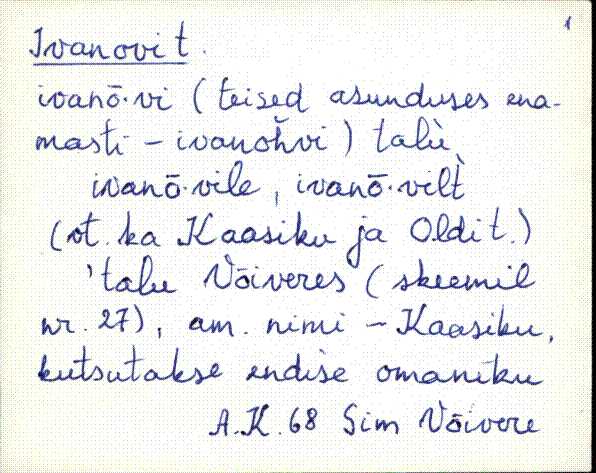 1
Ivanovi t.
ivanō·vi (teised asunduses ena-
masti – ivanoh̆vi) talù,
ivanō·vile, ivanō·vilt̀
(vt. ka Kaasiku ja Oldi t.)
'talu Võiveres (skeemil
nr. 27), am. nimi – Kaasiku,
kutsutakse endise omaniku
A.K. 68 Sim Võivere